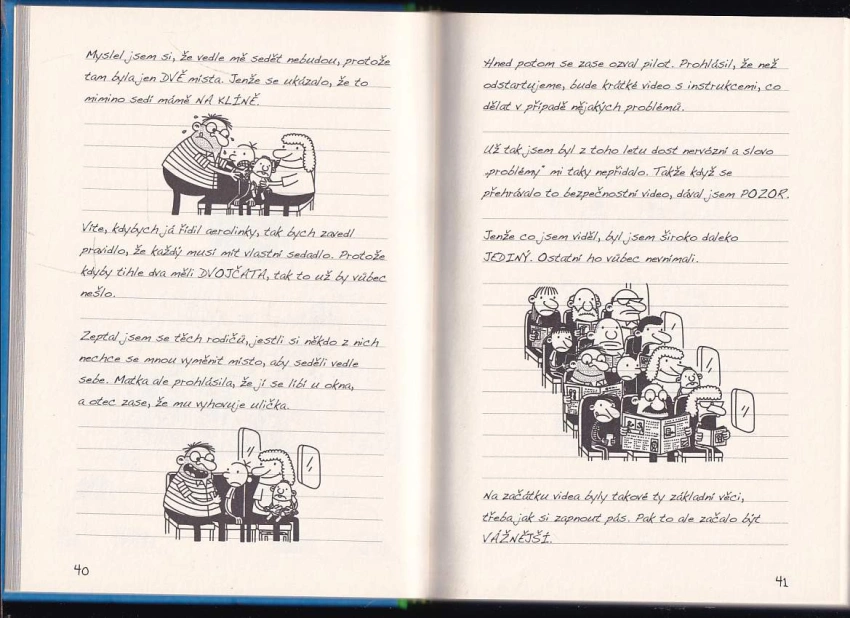 Myslel jsem si, že vedle mě sedět nebudou, protože
tam byla jen DVĚ místa. Jenže se ukázalo, že to
mimino sedí mámě NA KLÍNĚ.
Víte, kdybych já řídil aerolinky, tak bych zavedl
pravidlo, že každý musí mít vlastní sedadlo. Protože
kdyby tihle dva měli DVOJČATA, tak to už by vůbec
nešlo.
Zeptal jsem se těch rodičů, jestli si někdo z nich
nechce se mnou vyměnit místo, aby seděli vedle
sebe. Matka ale prohlásila, že jí se líbí u okna,
a otec zase, že mu vyhovuje ulička.
40
Hned potom se zase ozval pilot. Prohlásil, že než
odstartujeme, bude krátké video s instrukcemi, co
dělat v případě nějakých problémů.
Už tak jsem byl z toho letu dost nervózní a slovo
„problémy“ mi taky nepřidalo. Takže když se
přehrávalo to bezpečnostní video, dával jsem POZOR.
Jenže co jsem viděl, byl jsem široko daleko
JEDINÝ. Ostatní ho vůbec nevnímali.
Na začátku videa byly takové ty základní věci,
třeba jak si zapnout pás. Pak to ale začalo být
VÁŽNĚJŠÍ.
41